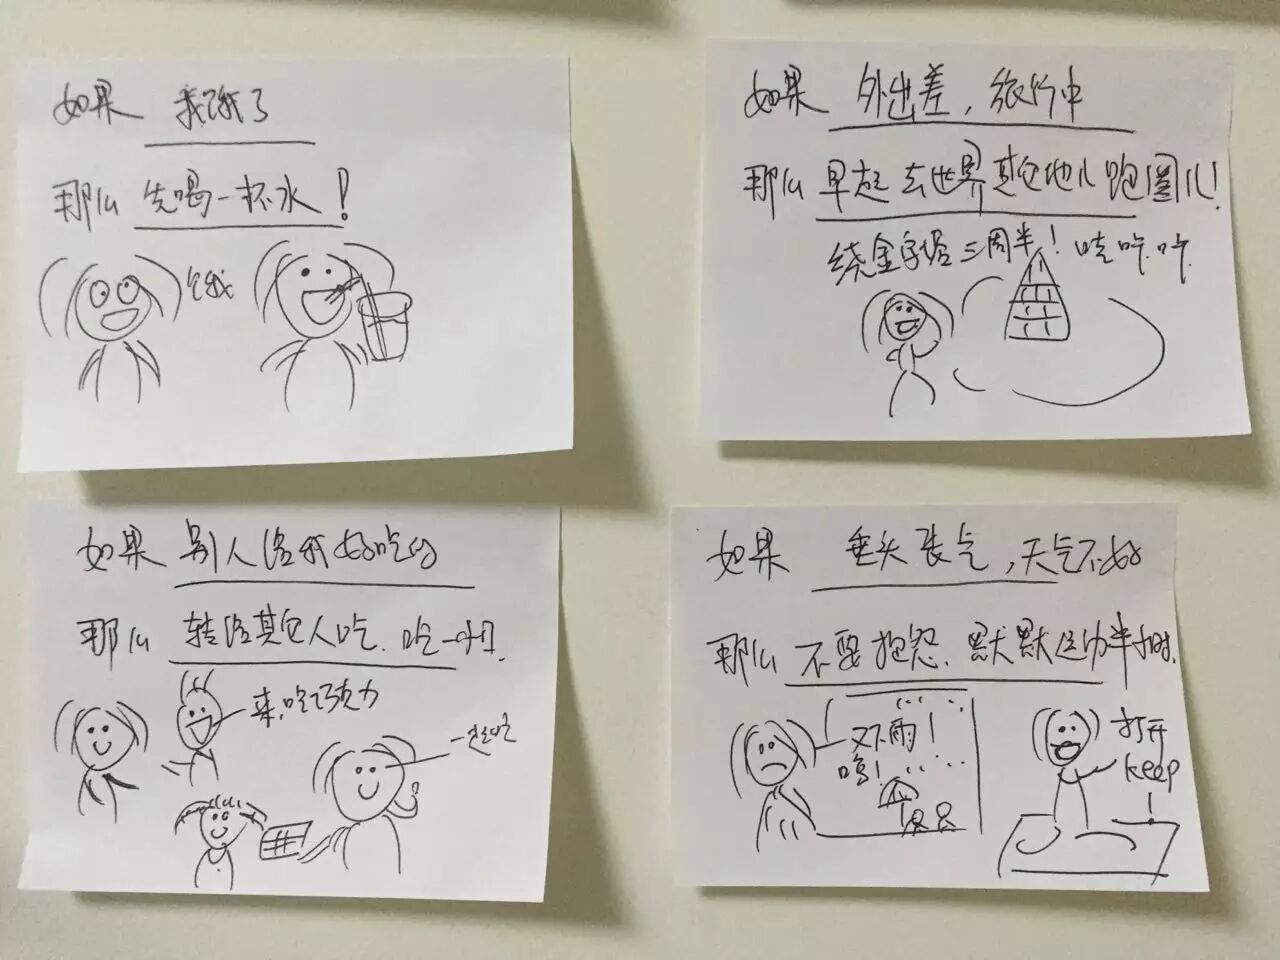 如果 我饿了
那么 先喝一杯水！
饿
如果 外出差，旅行中
那么 早起去世界其它地儿跑圈儿！
绕金字塔三周半！哇咔咔
如果 别人给我好吃的
那么 转给其它人吃．吃一小口．
来，吃巧克力
一起吃
如果 垂头丧气，天气不好
那么 不要抱怨．默默运动半小时．
又下雨！
打开
keep